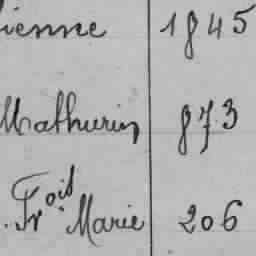 ienne 1845
Mathurin 873
Fr ois Marie 206